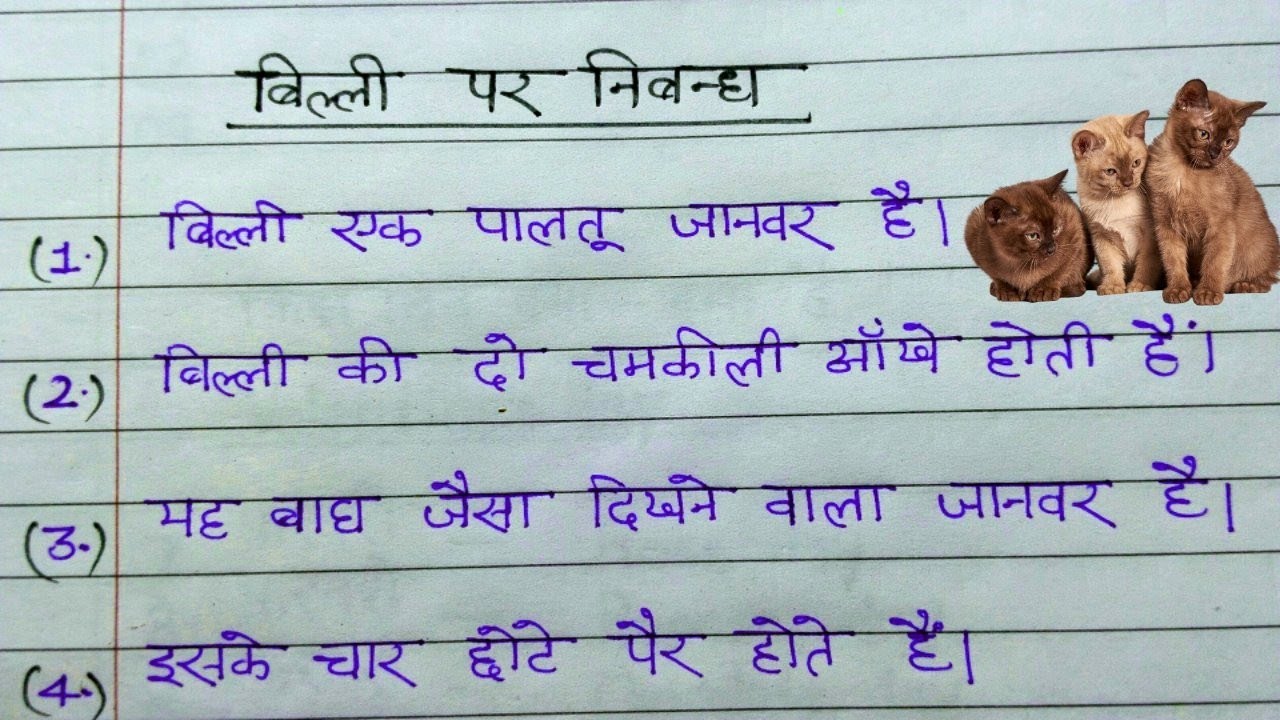 बिल्ली पर निबन्ध
(1.) बिल्ली एक पालतू जानवर है।
(2.) बिल्ली की दो चमकीली आँखे होती हैं।
(3.) यह बाघ जैसा दिखने वाला जानवर है।
(4.) इसके चार छोटे पैर होते हैं।